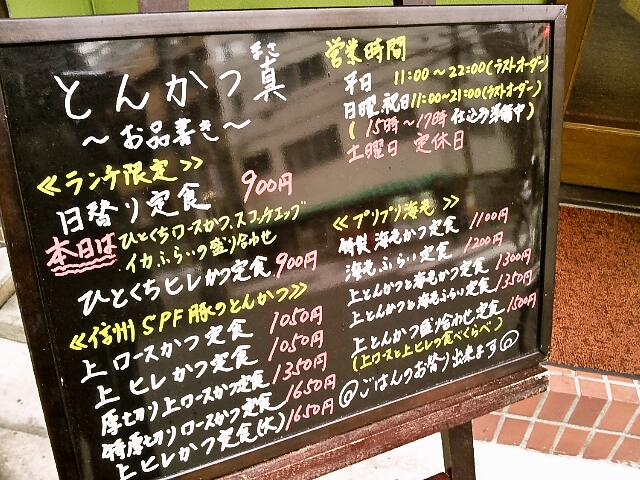 とんかつ 真
まさ
～お品書き～
≪ランチ限定≫
日替り定食 900円
本日は ひとくちロースかつ、スコッチエッグ
イカふらいの盛り合わせ
ひとくちヒレかつ定食 900円
≪信州SPF豚のとんかつ≫
上ロースかつ定食 1050円
上ヒレかつ定食 1050円
厚切り上ロースかつ定食 1350円
特厚切りロースかつ定食 1650円
上ヒレかつ定食(大) 1650円
営業時間
平日 11:00～22:00(ラストオーダー)
日曜、祝日 11:00～21:00(ラストオーダー)
(15時～17時 仕込み準備中)
土曜日 定休日
≪プリプリ海老≫
特製 海老かつ定食 1100円
海老ふらい定食 1200円
上とんかつと海老かつ定食 1300円
上とんかつと海老ふらい定食 1350円
上とんかつ盛り合わせ定食 1500円
(上ロースと上ヒレの食べくらべ)
◎ごはんのお替り出来ます◎